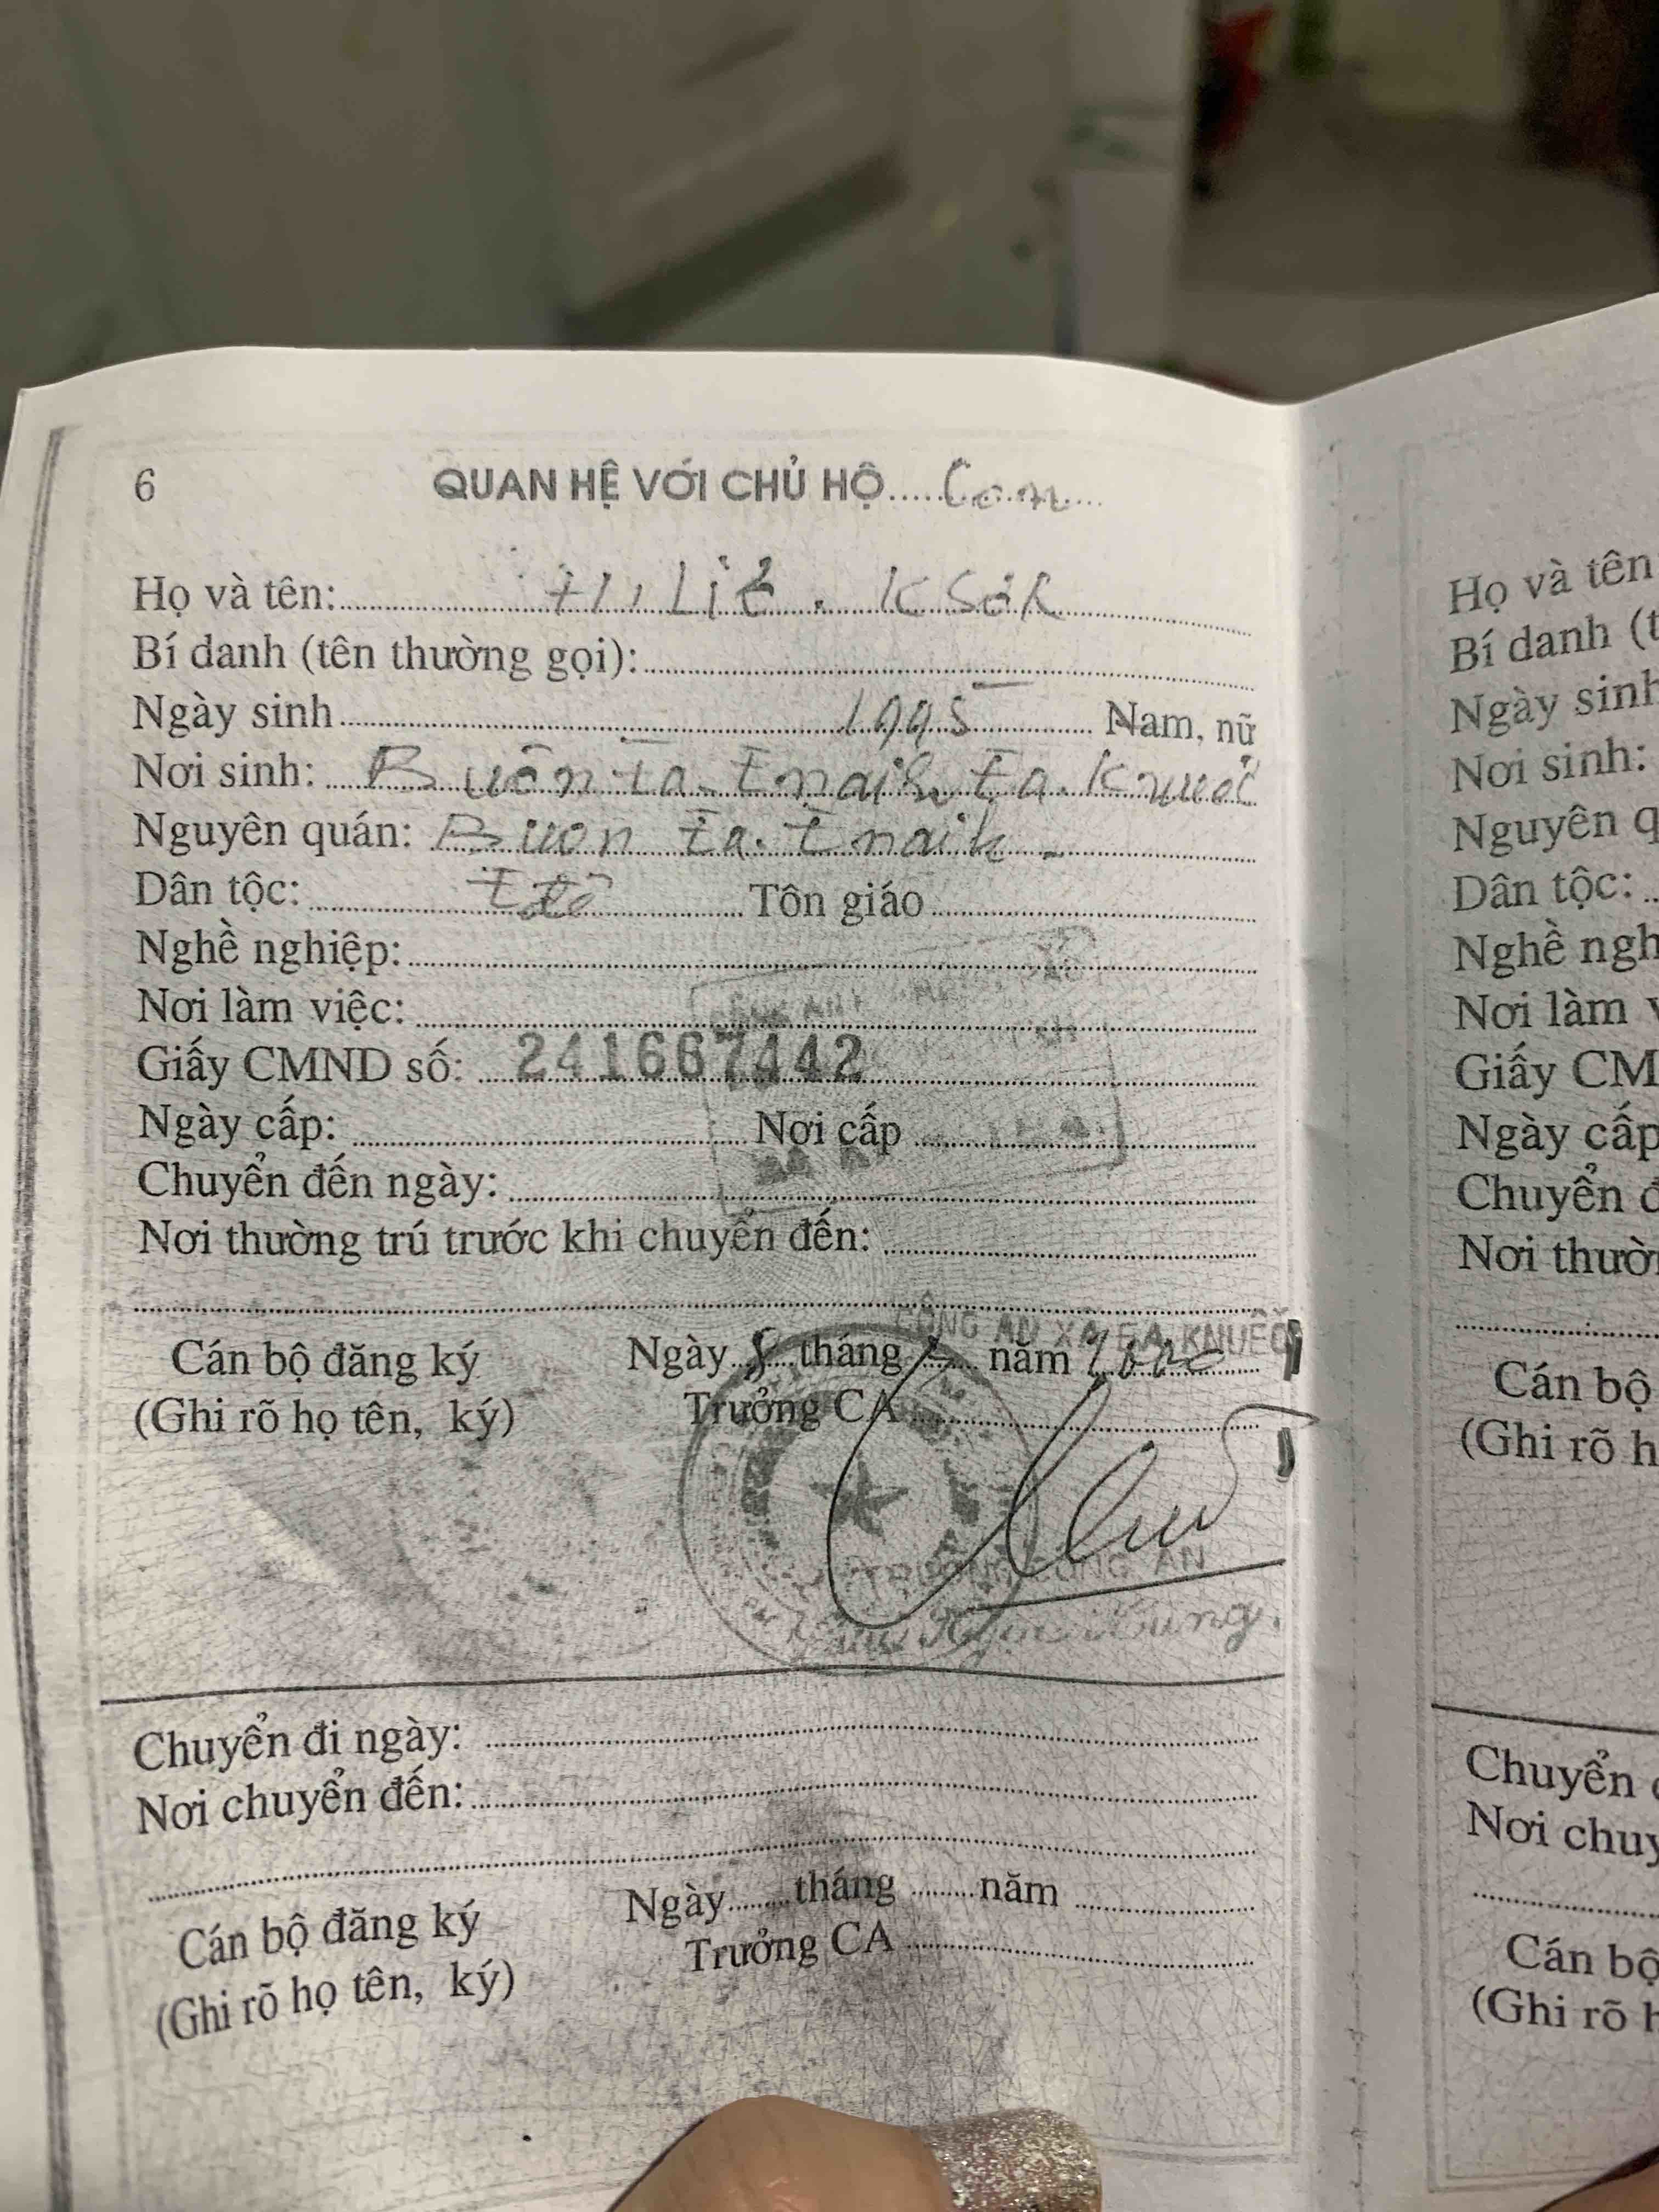 6 QUAN HỆ VỚI CHỦ HỘ.....Con...
Họ và tên: H, Liê. KSơR
Bí danh (tên thường gọi):
Ngày sinh 1995 Nam, nữ
Nơi sinh: Buôn Ea. Enaih, Ea. Knuếc
Nguyên quán: Buon Ea. Enaih
Dân tộc: Êđê Tôn giáo
Nghề nghiệp:
Nơi làm việc:
Giấy CMND số: 241667442
Ngày cấp: Nơi cấp
Chuyển đến ngày:
Nơi thường trú trước khi chuyển đến:
CÔNG AN XÃ EA KNUẾC
Cán bộ đăng ký Ngày 8 tháng năm
(Ghi rõ họ tên, ký) Trưởng CA
TRƯỞNG CÔNG AN
Chuyển đi ngày:
Nơi chuyển đến:
Cán bộ đăng ký Ngày tháng năm
(Ghi rõ họ tên, ký) Trưởng CA
Họ và tên
Bí danh
Ngày sinh
Nơi sinh:
Nguyên
Dân tộc:
Nghề
Nơi làm
Giấy
Ngày cấp
Chuyển
Nơi
Cán bộ
(Ghi rõ
Chuyển
Nơi
Cán bộ
(Ghi rõ